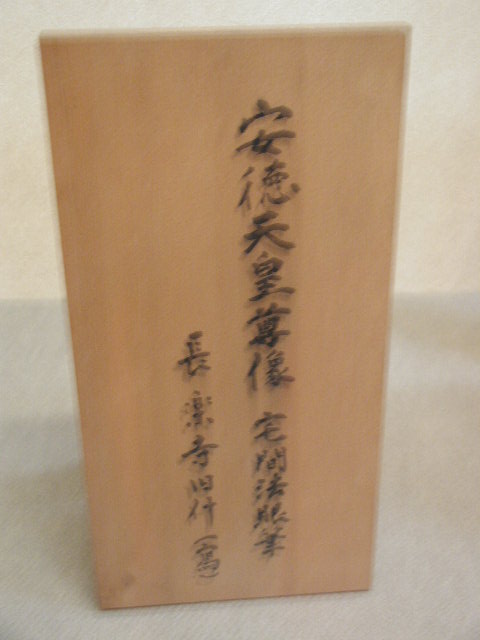 安徳天皇尊像 宅間法眼筆
長楽寺旧什(写)